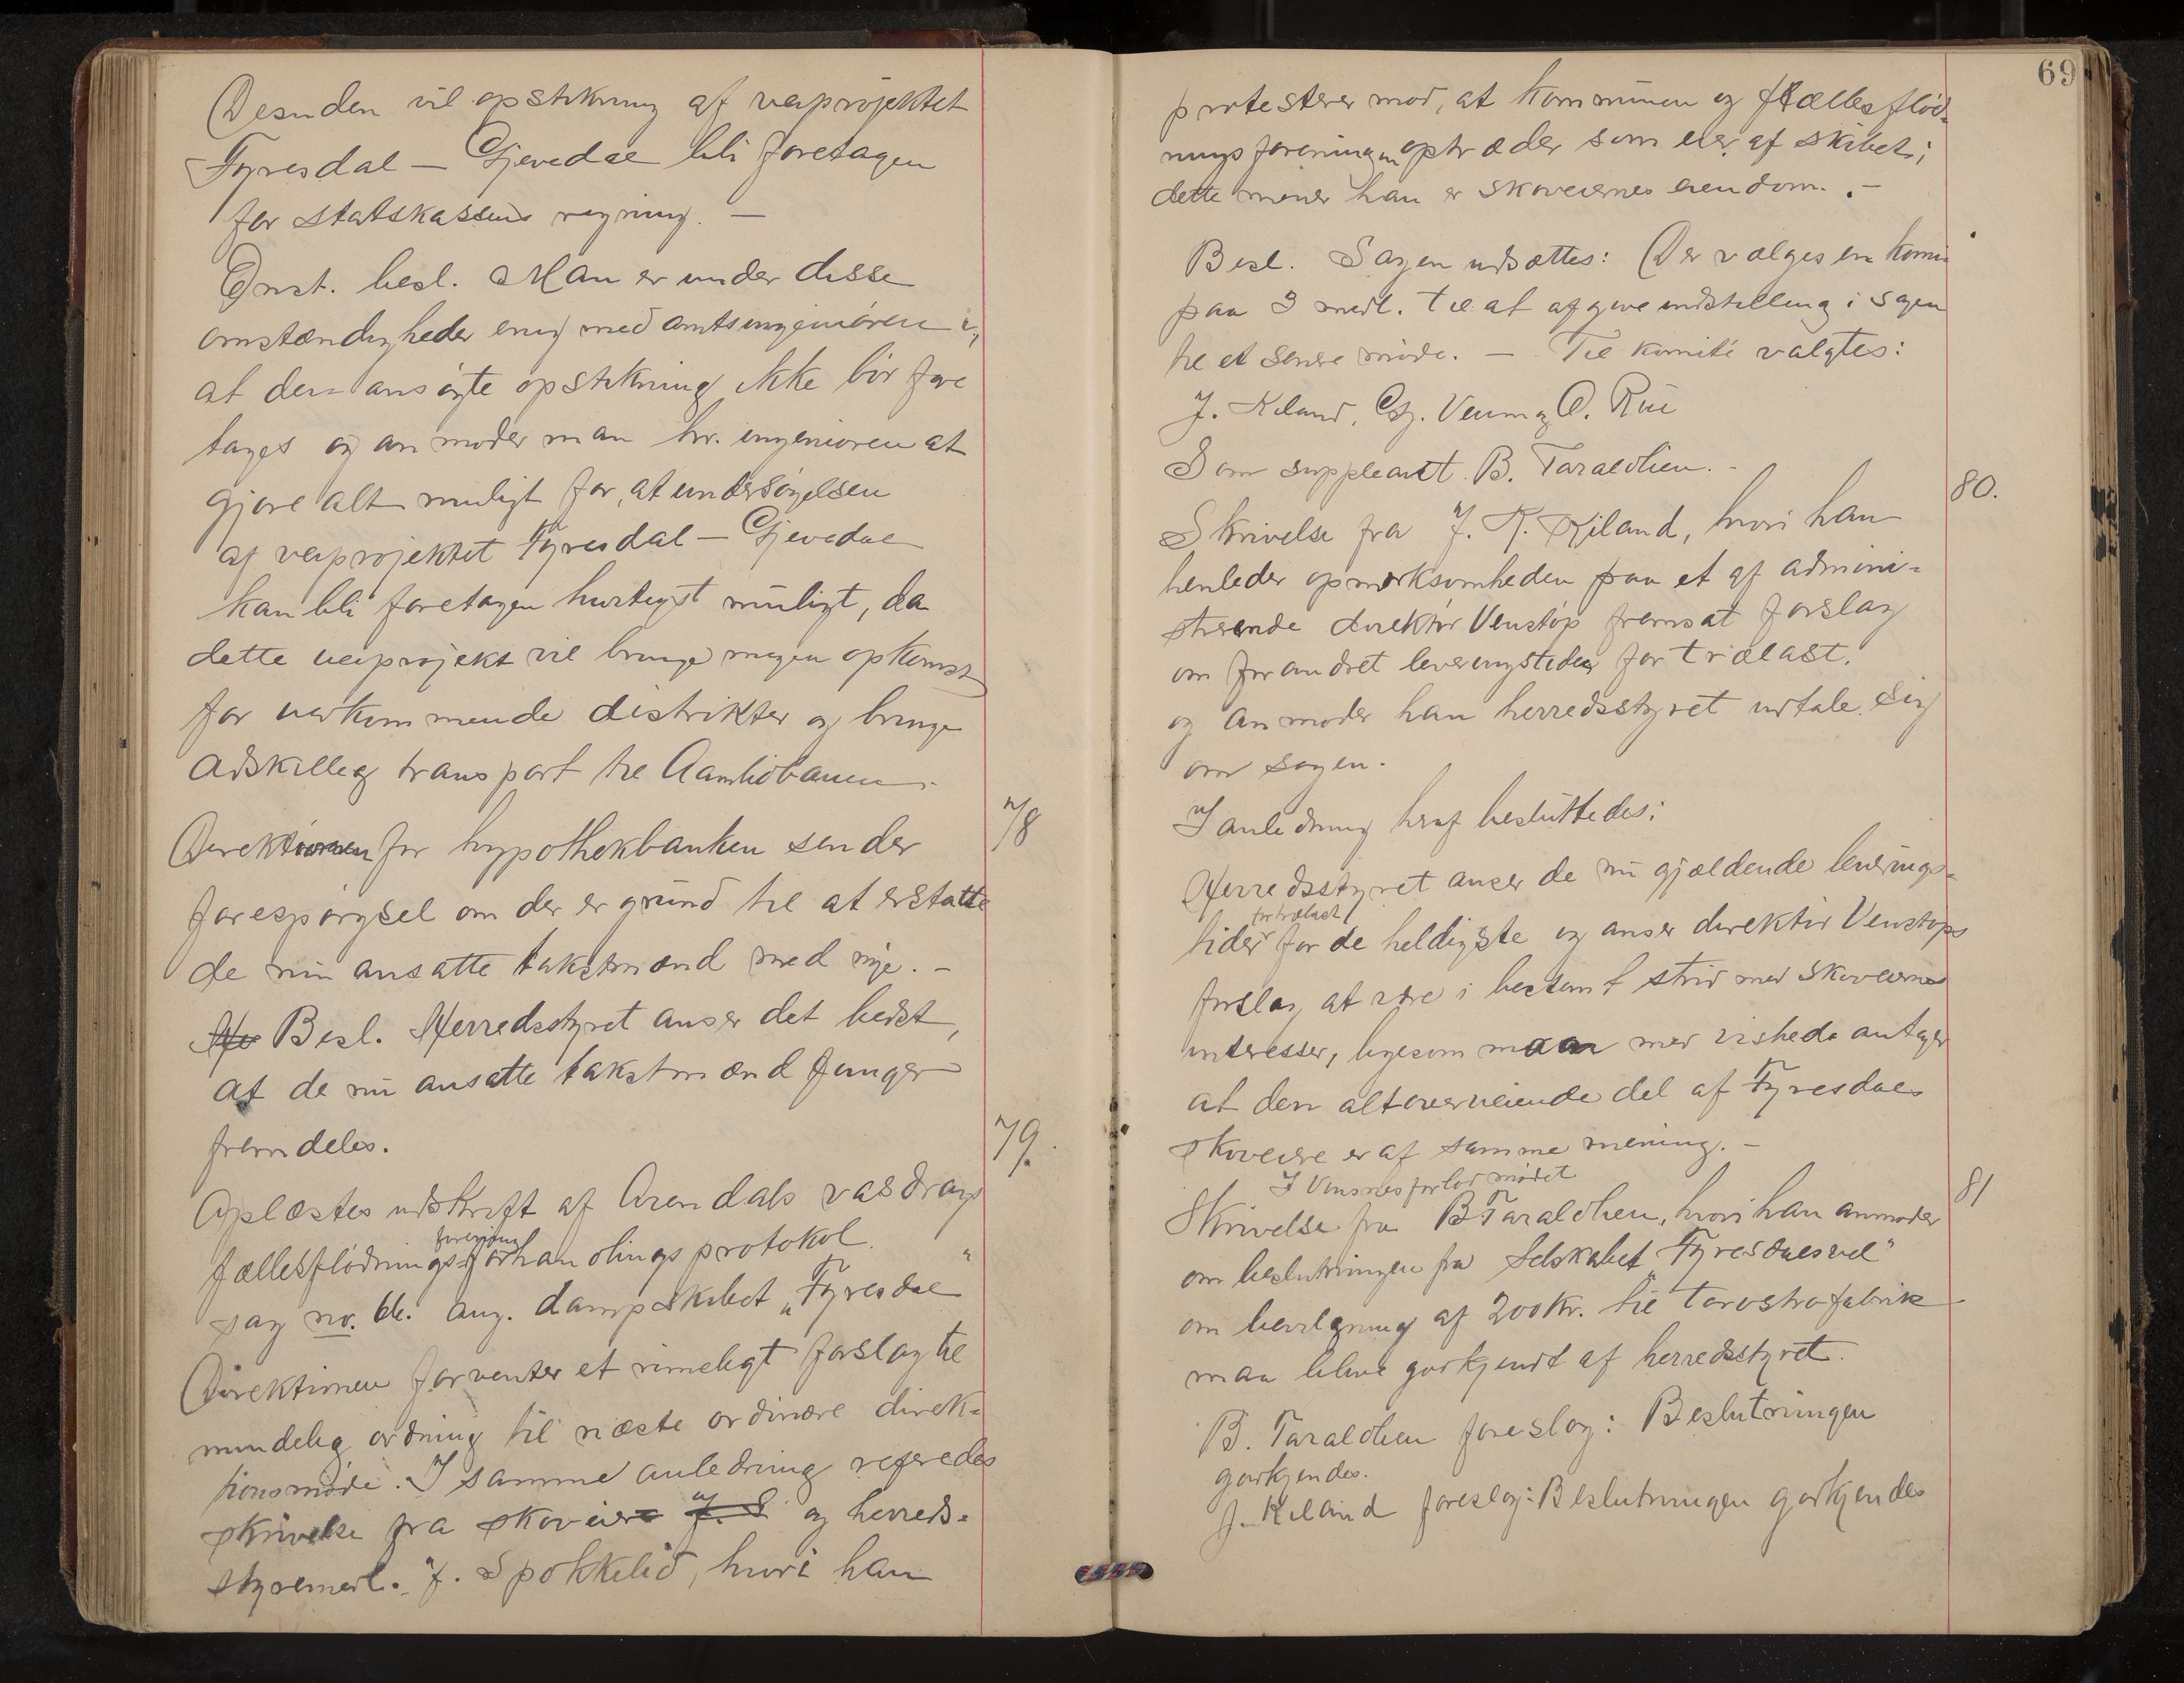 Desuden vil opstikning af veiprojektet
Fyresdal — Gjevedal bli foretagen
for statskassens regning. —
Enst. besl. Man er under disse
omstændigheder enig med amtsingeniøren i,
at den ansøgte opstikning ikke bør fore
tages og anmoder man hr. ingeniøren at
gjøre alt muligt for, at undersøgelsen
af veiprojektet Fyresdal — Gjevedal
kan bli foretagen hurtigst muligt, da
dette veiprojekt vil bringe megen opkomst
for vedkommende distrikter og bringe
adskillig transport til Aamlidbanen.
78
Direktionen for hypothekbanken sender
forespørgsel om der er grund til at erstatte
de nu ansatte takstmænd med nye. —
Besl. Herredsstyret anser det bedst,
at de nu ansatte takstmænd funger
fremdeles.
79.
Oplæstes udskrift af Arendals vasdrags
forenings
fællesflødnings forhandlingsprotokol
sag no. 66. ang. dampskibet „Fyresdal"
Direktionen forventer et rimeligt forslag til
mindelig ordning til næste ordinære direk-
tionsmøde. I samme anledning referedes
skrivelse fra skoveier J. S og herreds-
styremedl. J. Spokkelid, hvori han
69
protesterer mod, at kommunen og fællesflød-
ningsforeningen optræder som eier af skibet;
dette mener han er skoveiernes eiendom. —
Besl. Sagen udsættes: Der vælges en komi
paa 3 medl. til at afgive indstilling i sagen
til et senere møde. — Til komité valgtes:
J. Kiland, Gj. Veum og O. Rui
Som suppleant B. Taraldlien. —
80.
Skrivelse fra J. K. Kiland, hvori han
henleder opmerksomheden paa et af admini-
strerende direktør Venstøp fremsat forslag
om forandret leveringstider for trælast.
og anmoder han herredsstyret udtale sig
om sagen.
I anledning heraf besluttedes:
Herredsstyret anser de nu gjældende leverings-
for trælast
tider for de heldigste og anser direktør Venstøps
forslag at være i bestemt strid med skoveiernes
interesser, ligesom man med vished antager
at den altoverveiende del af Fyresdals
skoveiere er af samme mening. —
forlod mødet
81
Skrivelse fra B Taraldlien, hvori han anmoder
om beslutningen fra Selskabet „Fyresdals vel"
om bevilgning af 200 kr. til torvstrøfabrik
maa blive godkjendt af herredsstyret.
B. Taraldlien foreslog: Beslutningen
godkjendes.
J. Kiland foreslog: Beslutningen godkjendes